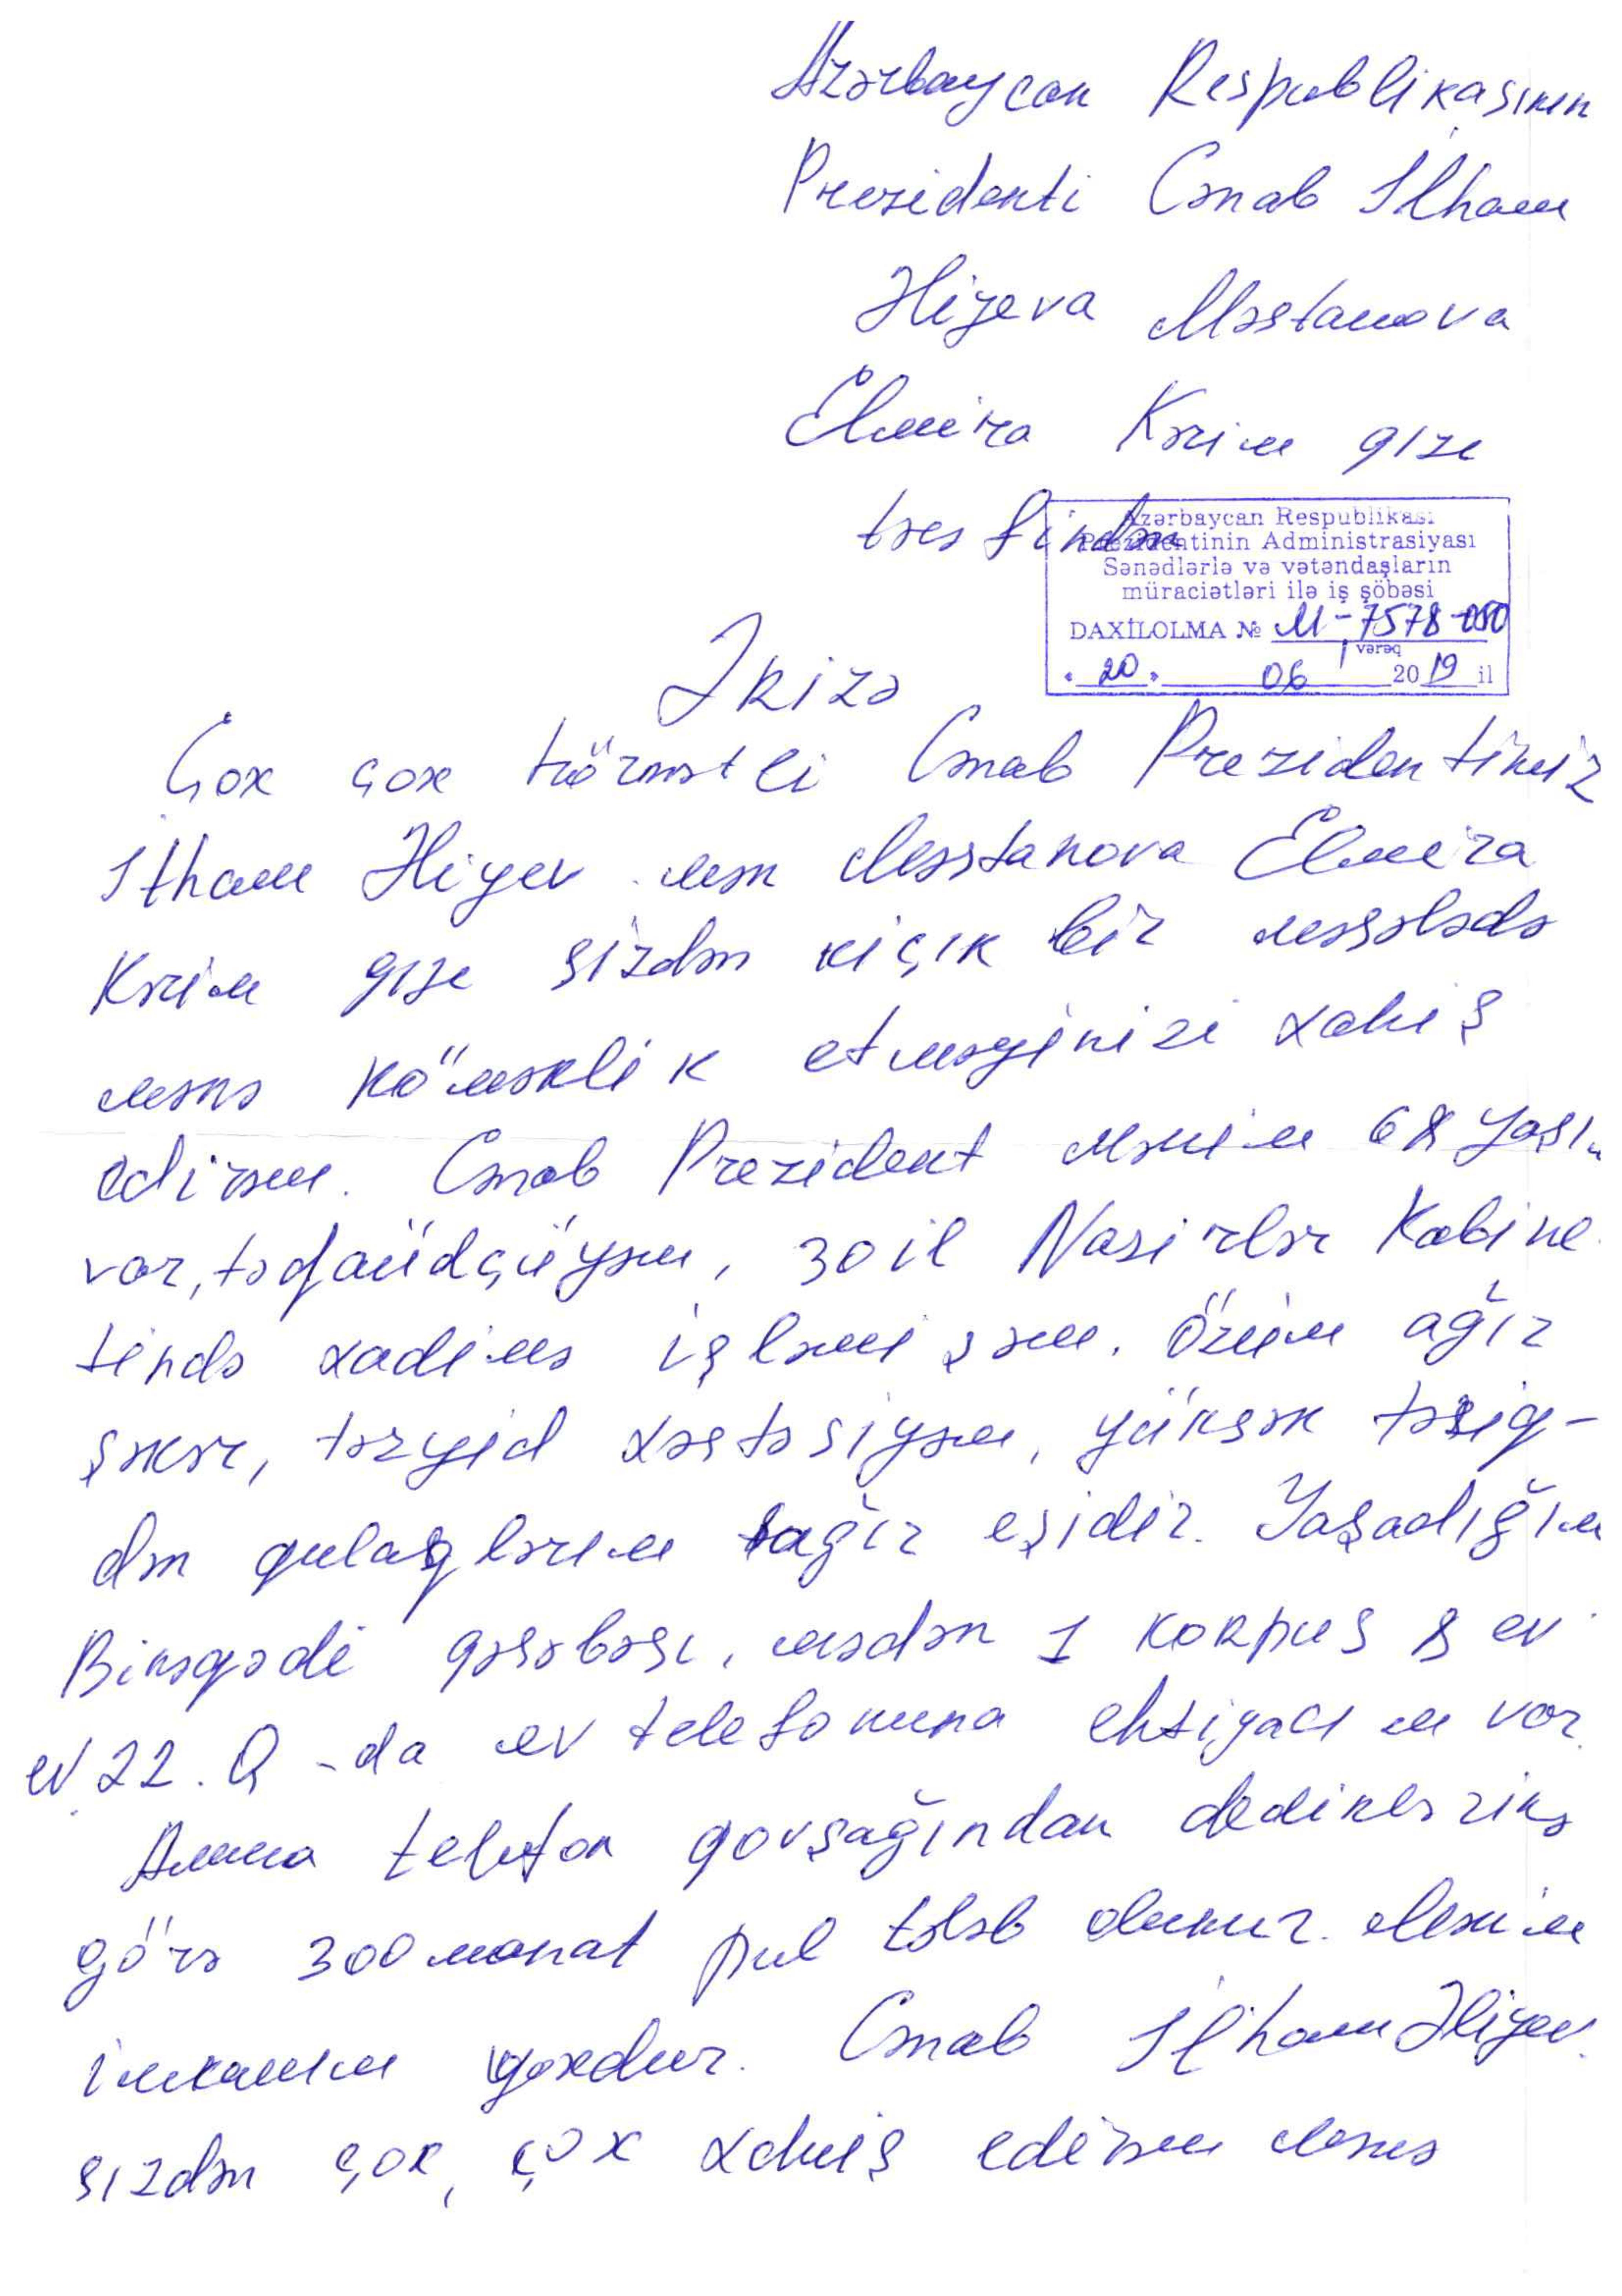 Azərbaycan Respublikasının
Prezidenti Cənab İlham
Əliyeva Məstanova
Elmira Kərim qızı
tərəfindən
Azərbaycan Respublikası
Prezidentinin Administrasiyası
Sənədlərlə və vətəndaşların
müraciətləri ilə iş şöbəsi
DAXİLOLMA № M-7578-050
1 vərəq
"20" 06 2019 il
Ərizə
Çox çox hörmətli Cənab Prezidentimiz
İlham Əliyev mən Məstanova Elmira
Kərim qızı sizdən kiçik bir məsələdə
mənə köməklik etməyinizi xahiş
edirəm. Cənab Prezident mənim 68 yaşım
var, təqaüdçüyəm, 30 il Nazirlər Kabine
tində xadimə işləmişəm. Özüm ağır
şəkər, təzyid xəstəsiyəm, yüksək təziq-
dən qulaqlərım ağır eşidir. Yaşadığım
Binəqədi qəsəbəsi, mədən 1 korpus 8 ev
ev 22. Q-da ev telefonuna ehtiyacım var.
Amma telefon qovşağından dediklərinə
görə 300 manat pul tələb olunur. Mənim
imkanım yoxdur. Cənab İlham Əliyev.
sizdən çox, çox xahiş edirəm mənə